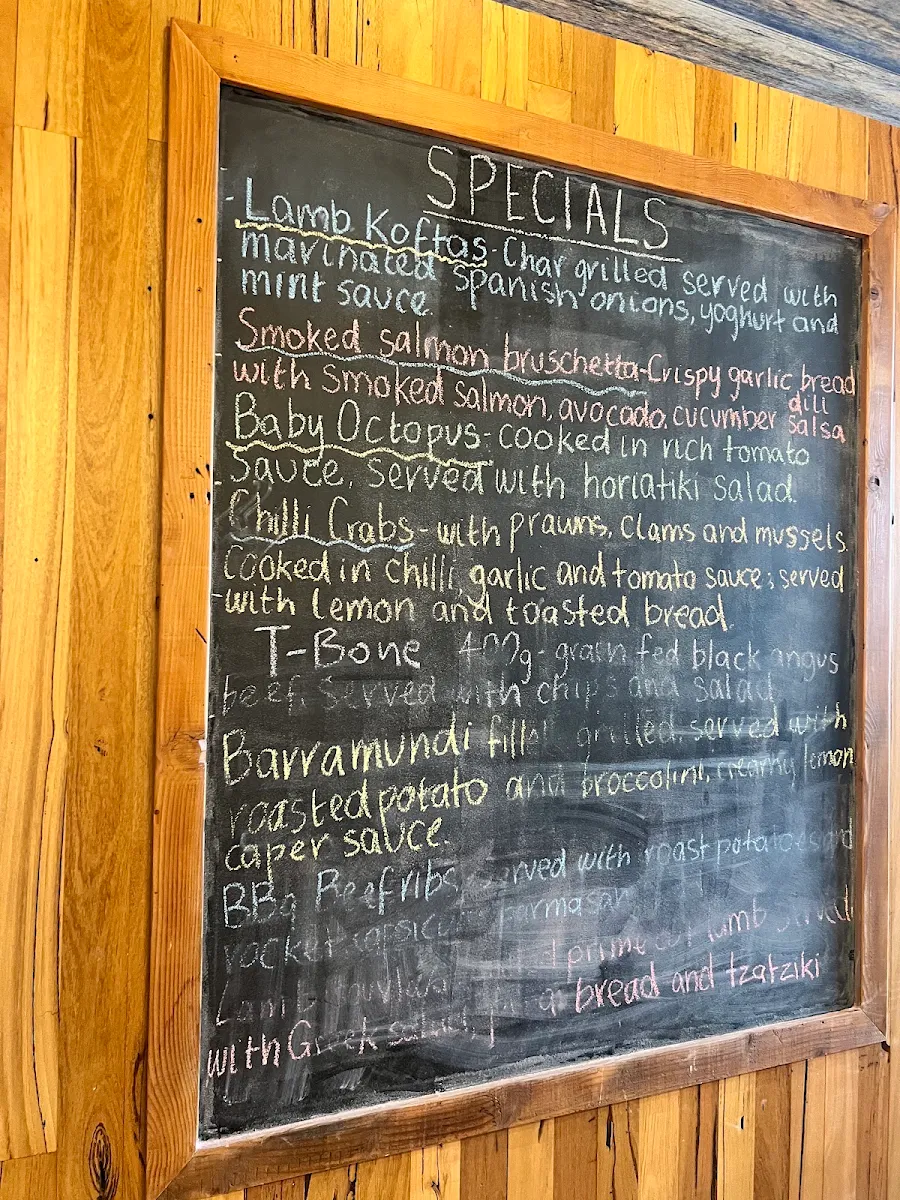 SPECIALS
- Lamb Koftas - Char grilled served with
marinated Spanish onions, yoghurt and
mint sauce.
Smoked salmon bruschetta - Crispy garlic bread
with smoked salmon, avocado, cucumber dill salsa
Baby Octopus - cooked in rich tomato
sauce, served with horiatiki salad.
Chilli Crabs - with prawns, clams and mussels.
Cooked in chilli, garlic and tomato sauce; served
with lemon and toasted bread.
T-Bone 400g - grain fed black angus
beef, served with chips and salad
Barramundi fillet grilled, served with
roasted potato and broccolini, creamy lemon
caper sauce.
BBq Beef ribs, served with roast potatoes and
rocket parmasan
prime lamb
Lamb bread and tzatziki
with Greek salad